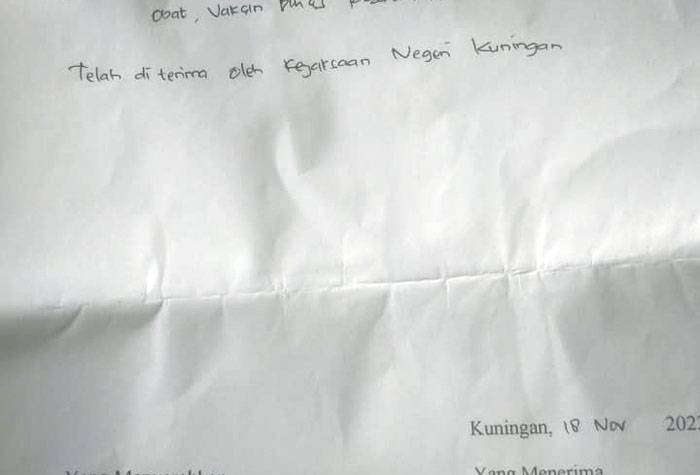 Obat, Vaksin Dinas
Telah di terima oleh Kejaksaan Negeri Kuningan
Kuningan, 18 Nov 202
Yang Menerima